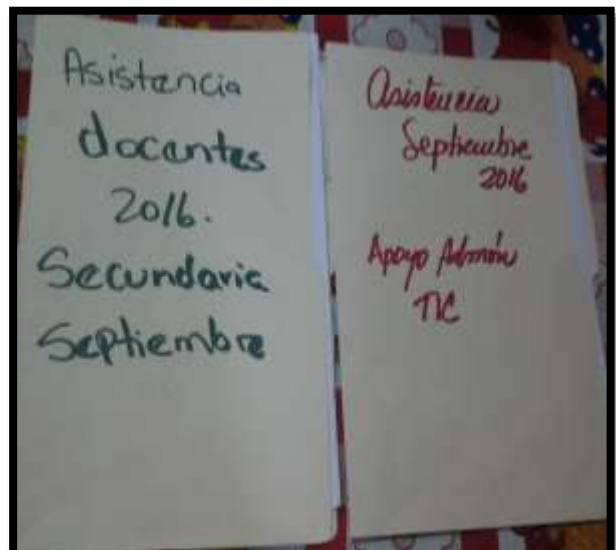 Asistencia
docentes
2016.
Secundaria
Septiembre
Asistencia
Septiembre
2016
Apoyo Admón
TIC